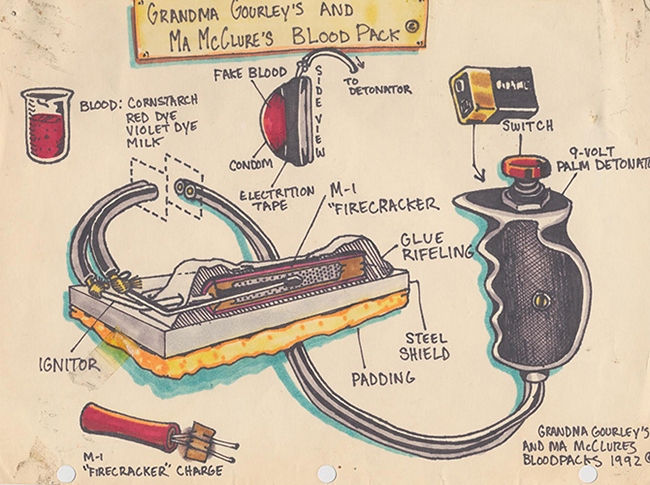 "GRANDMA GOURLEY'S AND
MA MCCLURE'S BLOOD PACK ©
FAKE BLOOD
SIDE VIEW
TO
DETONATOR
BLOOD: CORNSTARCH
RED DYE
VIOLET DYE
MILK
CONDOM
ELECTRITION
TAPE
SWITCH
9-VOLT
PALM DETONATO
M-1
"FIRECRACKER
GLUE
RIFELING
IGNITOR
STEEL
SHIELD
PADDING
M-1
"FIRECRACKER" CHARGE
GRANDMA GOURLEY'S
AND MA MCCLURES
BLOODPACKS 1992 ©